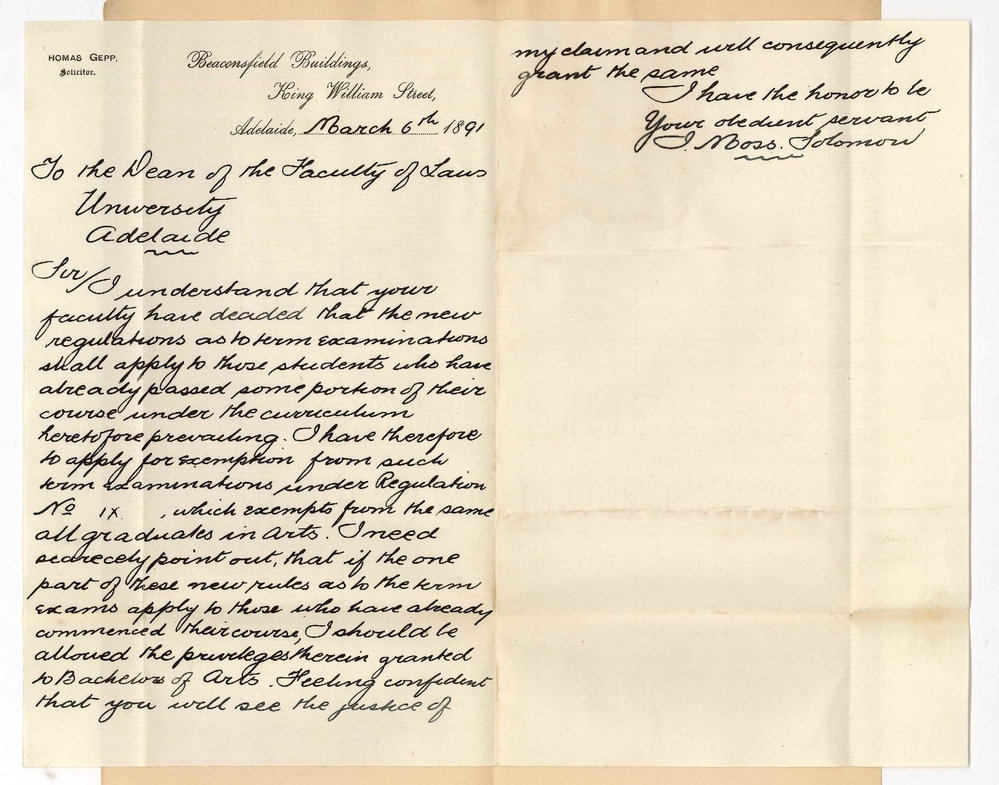 HOMAS GEPP,
Solicitor.
Beaconsfield Buildings,
King William Street,
Adelaide, March 6th 1891
To the Dean of the Faculty of Laws
University
Adelaide
Sir/ I understand that your
faculty have decided that the new
regulations as to term examinations
shall apply to those students who have
already passed some portion of their
course under the curriculum
heretofore prevailing. I have therefore
to apply for exemption from such
term examinations under Regulation
No IX , which exempts from the same
all graduates in Arts. I need
scarecely point out, that if the one
part of these new rules as to the term
exams apply to those who have already
commenced their course, I should be
allowed the privileges therein granted
to Bachelors of Arts. Feeling confident
that you will see the justice of
my claim and will consequently
grant the same
I have the honor to be
Your obedient servant
I. Moss. Solomon